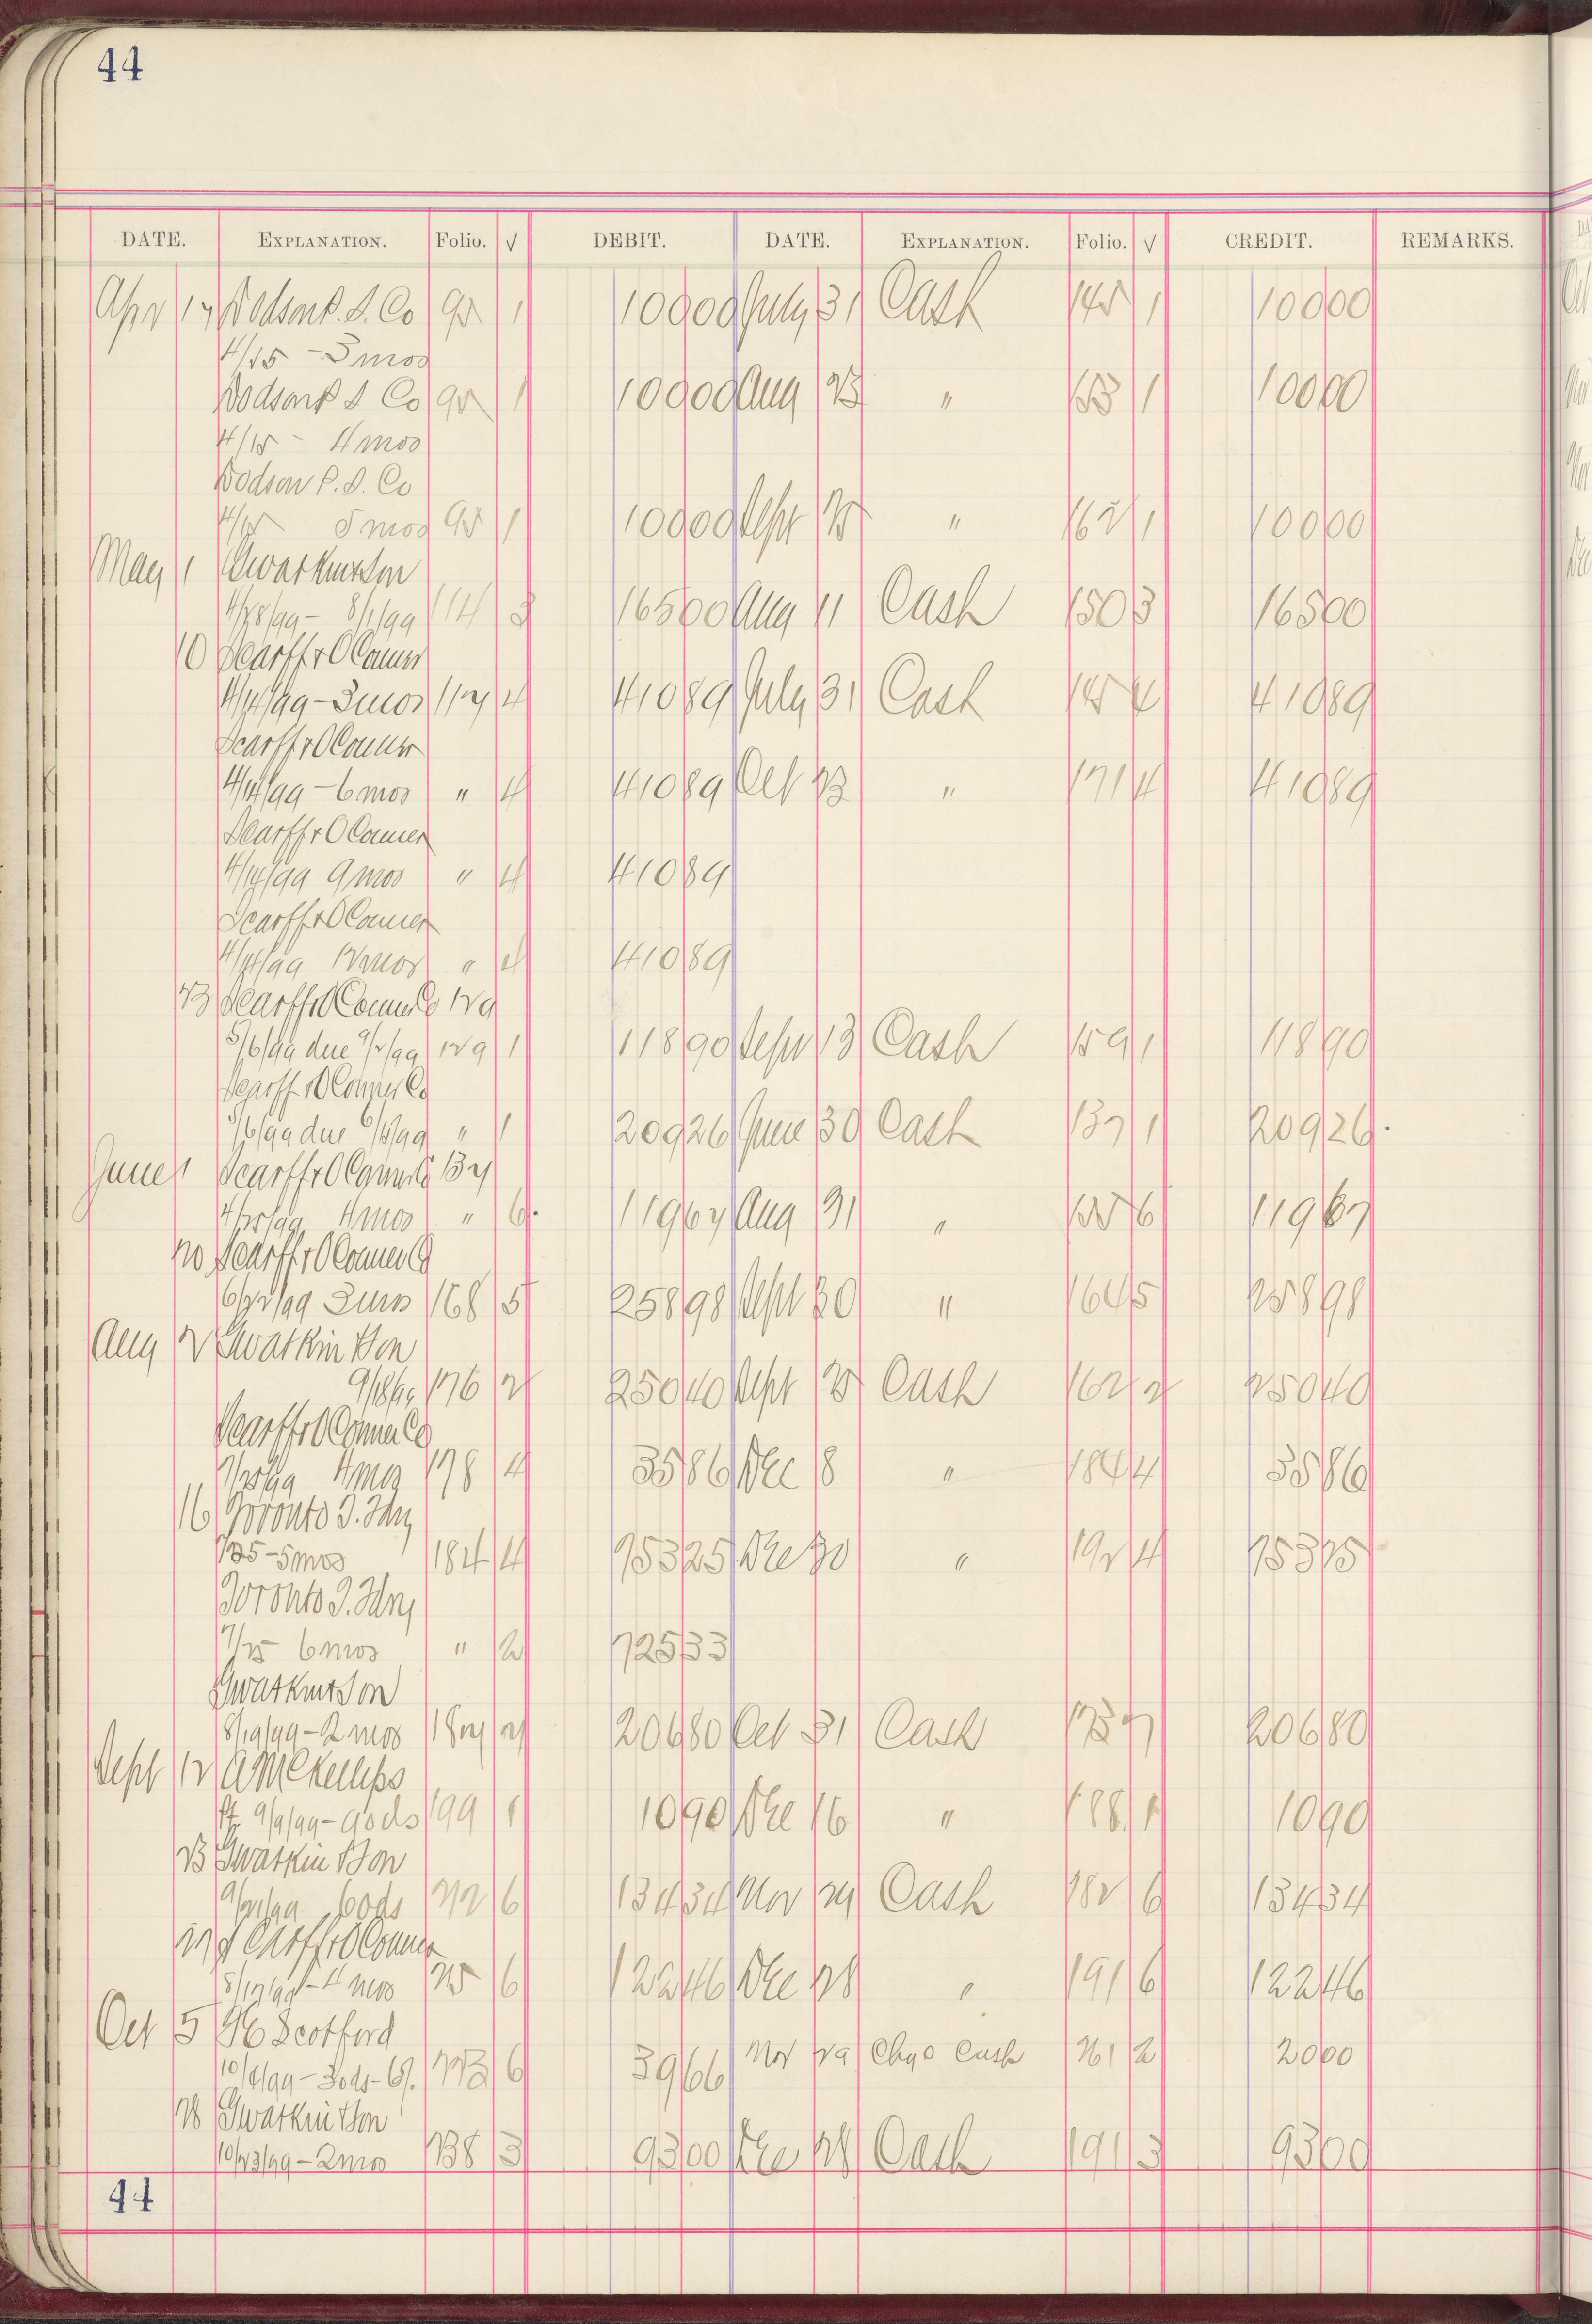 44
DATE. EXPLANATION. Folio. √ DEBIT. DATE. EXPLANATION. Folio. √ CREDIT. REMARKS.
Apr 17 Dodson P. S. Co 92 1 10000 July 31 Cash 145 1 10000
4/15 - 3 mos
Dodson P S Co 92 1 10000 Aug 23 " 153 1 10000
4/15 - 4 mos
Dodson P. S. Co
4/15 5 mos 92 1 10000 Sept 25 " 162 1 10000
May 1 Gwatkin & Son
4/28/99 - 8/1/99 114 3 16500 Aug 11 Cash 150 3 16500
10 Scarff & O Connor
4/14/99 - 3 mos 117 4 41089 July 31 Cash 145 4 41089
Scarff & O Connor
4/14/99 - 6 mos " 4 41089 Oct 23 " 171 4 41089
Scarff & O Connor
4/14/99 9 mos " 4 41089
Scarff & O Connor
4/14/99 12 mos " 4 41089
23 Scarff & O Connor Co 129
5/6/99 due 9/2/99 129 1 11890 Sept 13 Cash 159 1 11890
Scarff & O Connor Co
5/6/99 due 6/15/99 " 1 20926 June 30 Cash 137 1 20926
June 1 Scarff & O Connor Co 137
4/25/99 4 mos " 6 11967 Aug 31 " 155 6 11967
20 Scarff & O Connor Co
6/22/99 3 mos 168 5 25898 Sept 30 " 164 5 25898
Aug 2 Gwatkin & Son
9/18/99 176 2 25040 Sept 25 Cash 162 2 25040
Scarff & O Connor Co
7/25/99 4 mos 178 4 3586 Dec 8 " 184 4 3586
16 Toronto T. Fdry
7/25 - 5 mos 184 4 75325 Dec 30 " 192 4 75325
Toronto T. Fdry
7/25 6 mos " 2 72533
Gwatkin & Son
8/19/99 - 2 mos 187 7 20680 Oct 31 Cash 175 7 20680
Sept 12 A McKellips
9/9/99 - 90 ds 199 1 1090 Dec 16 " 188 1 1090
23 Gwatkin & Son
9/21/99 60 ds 212 6 13434 Nov 24 Cash 182 6 13434
27 Scarff & O Connor
8/17/99 - 4 mos 215 6 12246 Dec 28 " 191 6 12246
Oct 5 Scotford
10/4/99 - 30 ds - 6%. 223 6 3966 Nov 29 Chgo Cash 261 2 2000
28 Gwatkin & Son
10/23/99 - 2 mos 238 3 9300 Dec 28 Cash 191 3 9300
44